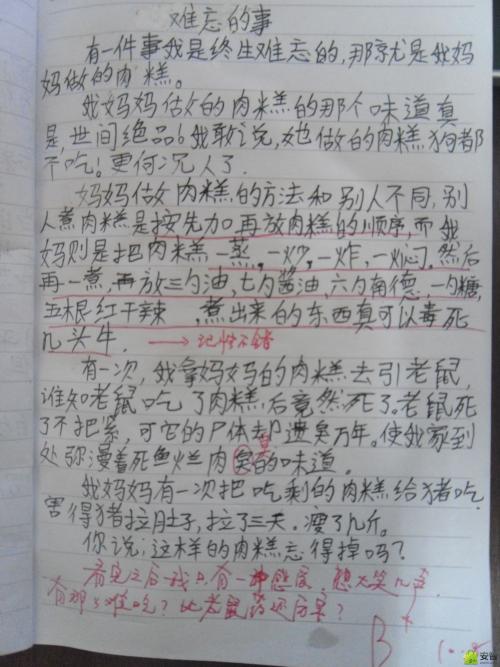 难忘的事
有一件事我是终生难忘的,那就是我妈
妈做的肉糕。
我妈妈做的肉糕的那个味道真
是,世间绝品。我敢说,她做的肉糕狗都
不吃!更何况人了.
妈妈做肉糕的方法和别人不同,别
人煮肉糕是按先加 再放肉糕的顺序,而我
妈则是把肉糕一蒸,一炒,一炸,一焖,然后
再一煮,再放三勺油,七勺酱油,六勺南德.一勺糖,
五根红干辣 ,煮出来的东西真可以毒死
几头牛. →记性不错
有一次,我拿妈妈的肉糕去引老鼠,
谁知老鼠吃了肉糕后竟然死了。老鼠死
了不打紧,可它的尸体却遗臭万年。使我家到
处弥漫着死鱼烂肉臭的味道.
我妈妈有一次把吃剩的肉糕给猪吃.
害得猪拉肚子,拉了三天.瘦了几斤。
你说,这样的肉糕忘得掉吗?
看完之后我只有一种感度,想大笑几声,
有那么难吃?比老鼠药还厉害?
B+
安智